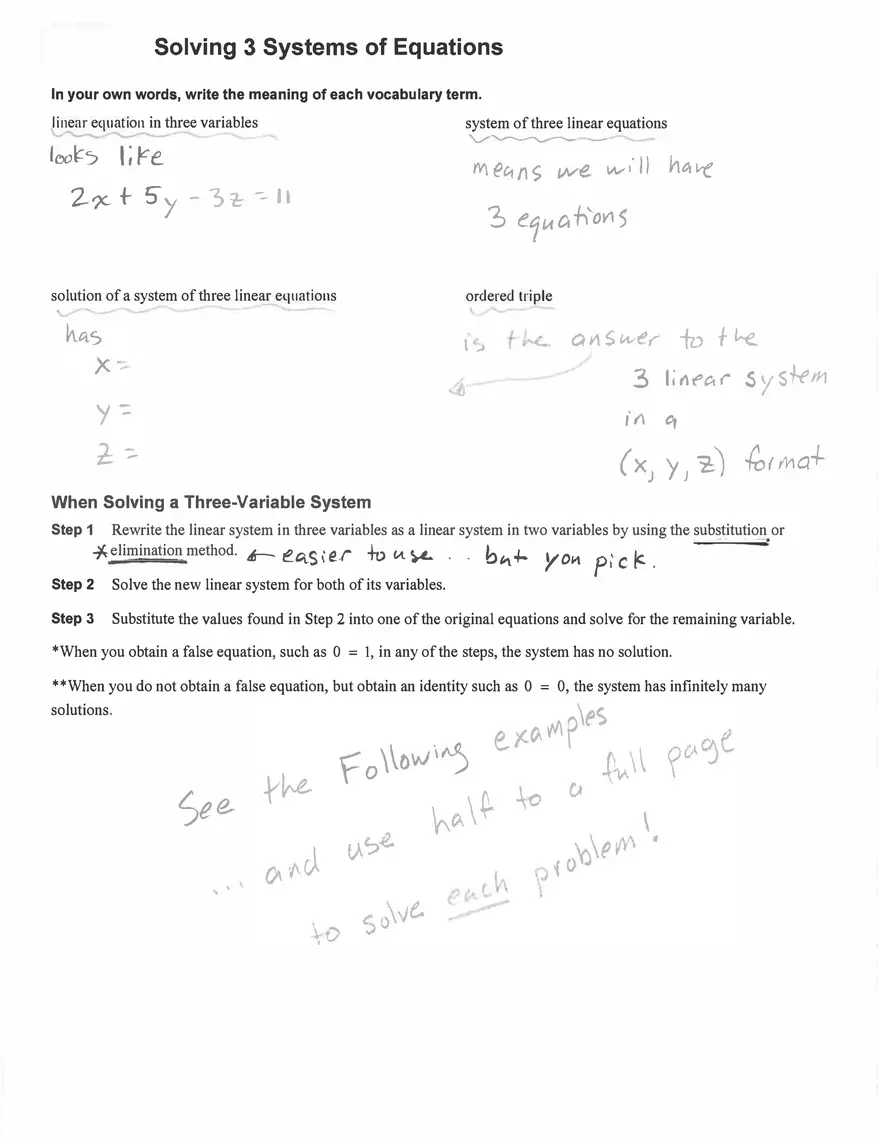 Solving 3 Systems of Equations
In your own words, write the meaning of each vocabulary term.
linear equation in three variables
looks like
2x + 5y - 3z = 11
system of three linear equations
means we will have
3 equations
solution of a system of three linear equations
has
x =
y =
z =
ordered triple
is the answer to the
3 linear system
in a
(x, y, z) format
When Solving a Three-Variable System
Step 1 Rewrite the linear system in three variables as a linear system in two variables by using the substitution or
*elimination method. ← easier to use .. but you pick.
Step 2 Solve the new linear system for both of its variables.
Step 3 Substitute the values found in Step 2 into one of the original equations and solve for the remaining variable.
*When you obtain a false equation, such as 0 = 1, in any of the steps, the system has no solution.
**When you do not obtain a false equation, but obtain an identity such as 0 = 0, the system has infinitely many
solutions.
See the Following examples
... and use half to a full page
to solve each problem!